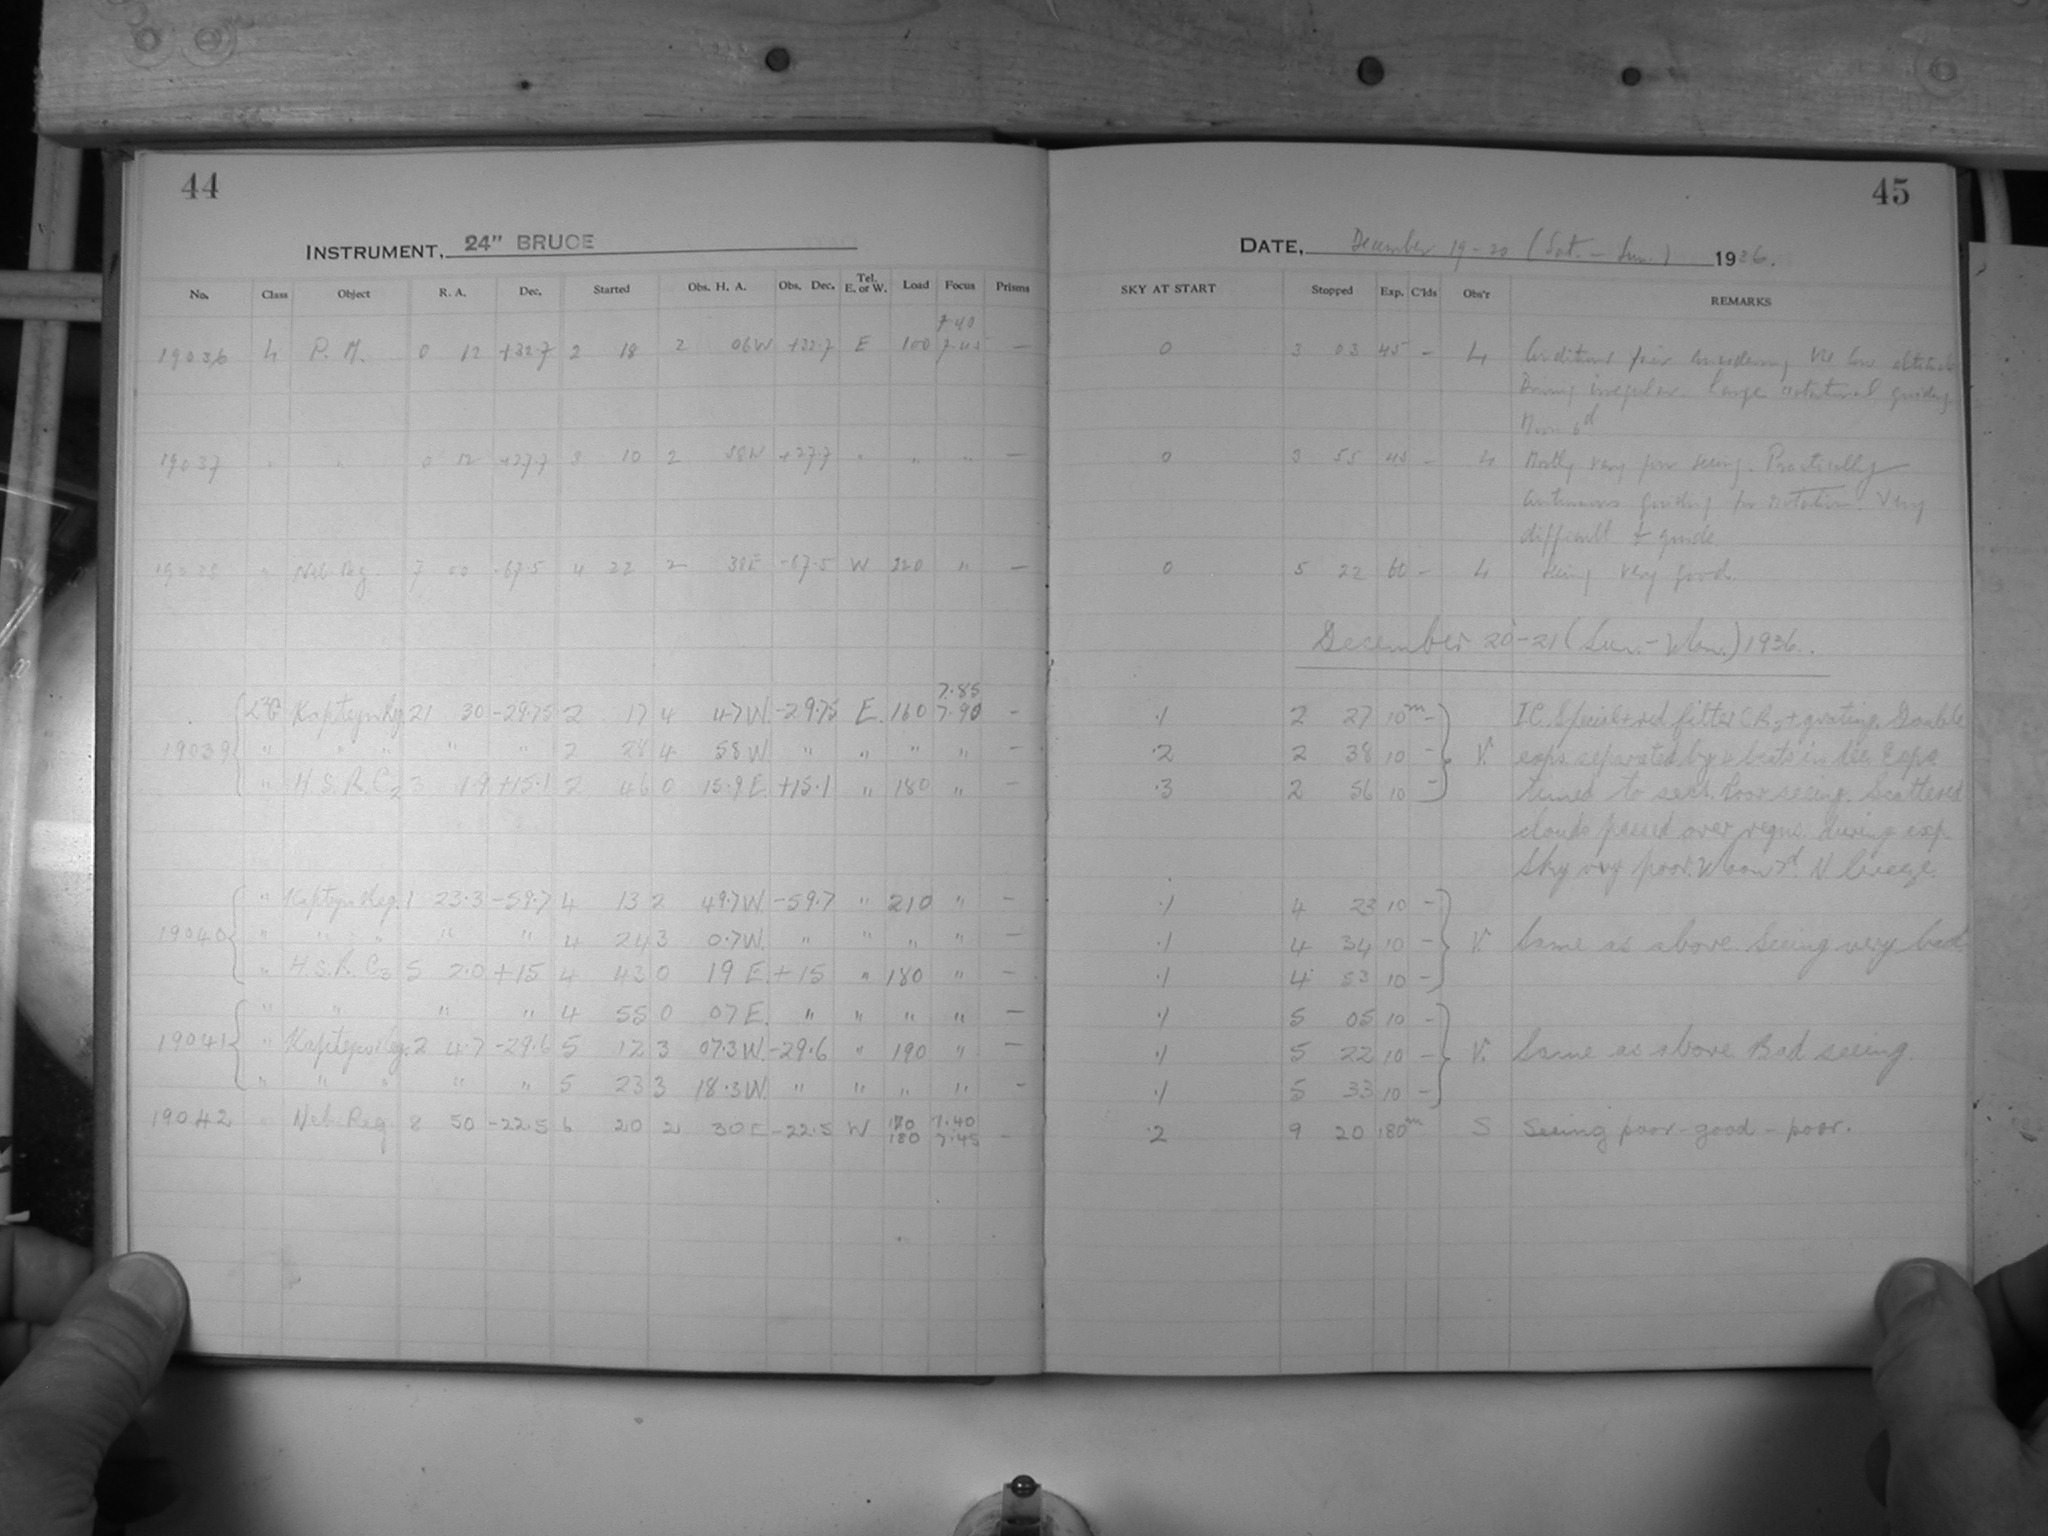 44
INSTRUMENT, 24" BRUCE
No. Class Object R. A. Dec. Started Obs. H. A. Obs. Dec. Tel. E. or W. Load Focus Prisms
7.40
19036 L P. M. 0 12 +32.7 2 18 2 06W +32.7 E 100 7.45 —
19037 " " 0 12 +27.7 3 10 2 58W +27.7 " " " —
" Neb Reg. 7 00 -67.5 4 22 2 38E -67.5 W 220 " —
7.85
Kapteyn Reg. 21 30 -29.75 2 17 4 47W -29.75 E 160 7.90 -
19039 " " " " " 2 28 4 58W " " " " -
" H.S.R.C2 3 +15.1 2 46 0 15.9E +15.1 " 180 " -
" Kapteyn Reg. 1 23.3 -59.7 4 13 2 49.7W. -59.7 " 210 " -
19040 " " " " " 4 24 3 0.7W. " " " " -
" H.S.R. C3 5 2.0 +15 4 43 0 19 E +15 " 180 " -
" " " " 4 55 0 07E. " " " " -
19041 " Kapteyn Reg. 2 4.7 -29.6 5 12 3 07.3W. -29.6 " 190 " -
" " " " " 5 23 3 18.3W. " " " " -
19042 " Neb. Reg 8 50 -22.5 6 20 2 30E -22.5 W 170 7.40
180 7.45 -
45
DATE, December 19-20 (Sat. - Sun.) 1936.
SKY AT START Stopped Exp. C'lds Obs'r REMARKS
0 3 03 45 - L Conditions fair considering the low altitude
Driving irregular. Large rotational guiding
Moon 6d
0 3 55 45 - L Mostly very poor seeing. Practically
continuous guiding for rotation. Very
difficult to guide
0 5 22 60 - L Seeing very good.
December 20-21 (Sun. - Mon.) 1936.
.1 2 27 10m - I.C. Special + red filter + grating. Double
.2 2 38 10 - V. exps. separated by beats in dec. Exps.
.3 2 56 10 - timed to sec. Poor seeing. Scattered
clouds passed over during exp.
Sky very poor. Moon 7d. N breeze.
.1 4 23 10 -
.1 4 34 10 - V. Same as above. Seeing very bad
.1 4 53 10 -
.1 5 05 10 -
.1 5 22 10 - V. Same as above. Bad seeing.
.1 5 33 10 -
.2 9 20 180m S Seeing poor - good - poor.